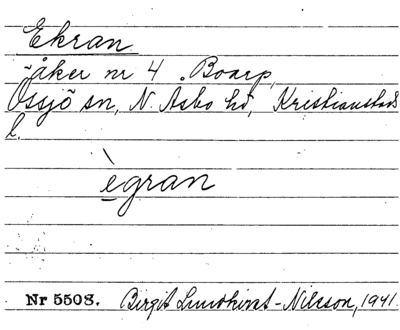 Ekran
-åker nr 4. Boarp,
Össjö sn, N. Åsbo hd, Kristianstads
l.
ègran
Nr 5508. Birgit Lundkvist-Nilsson, 1941.